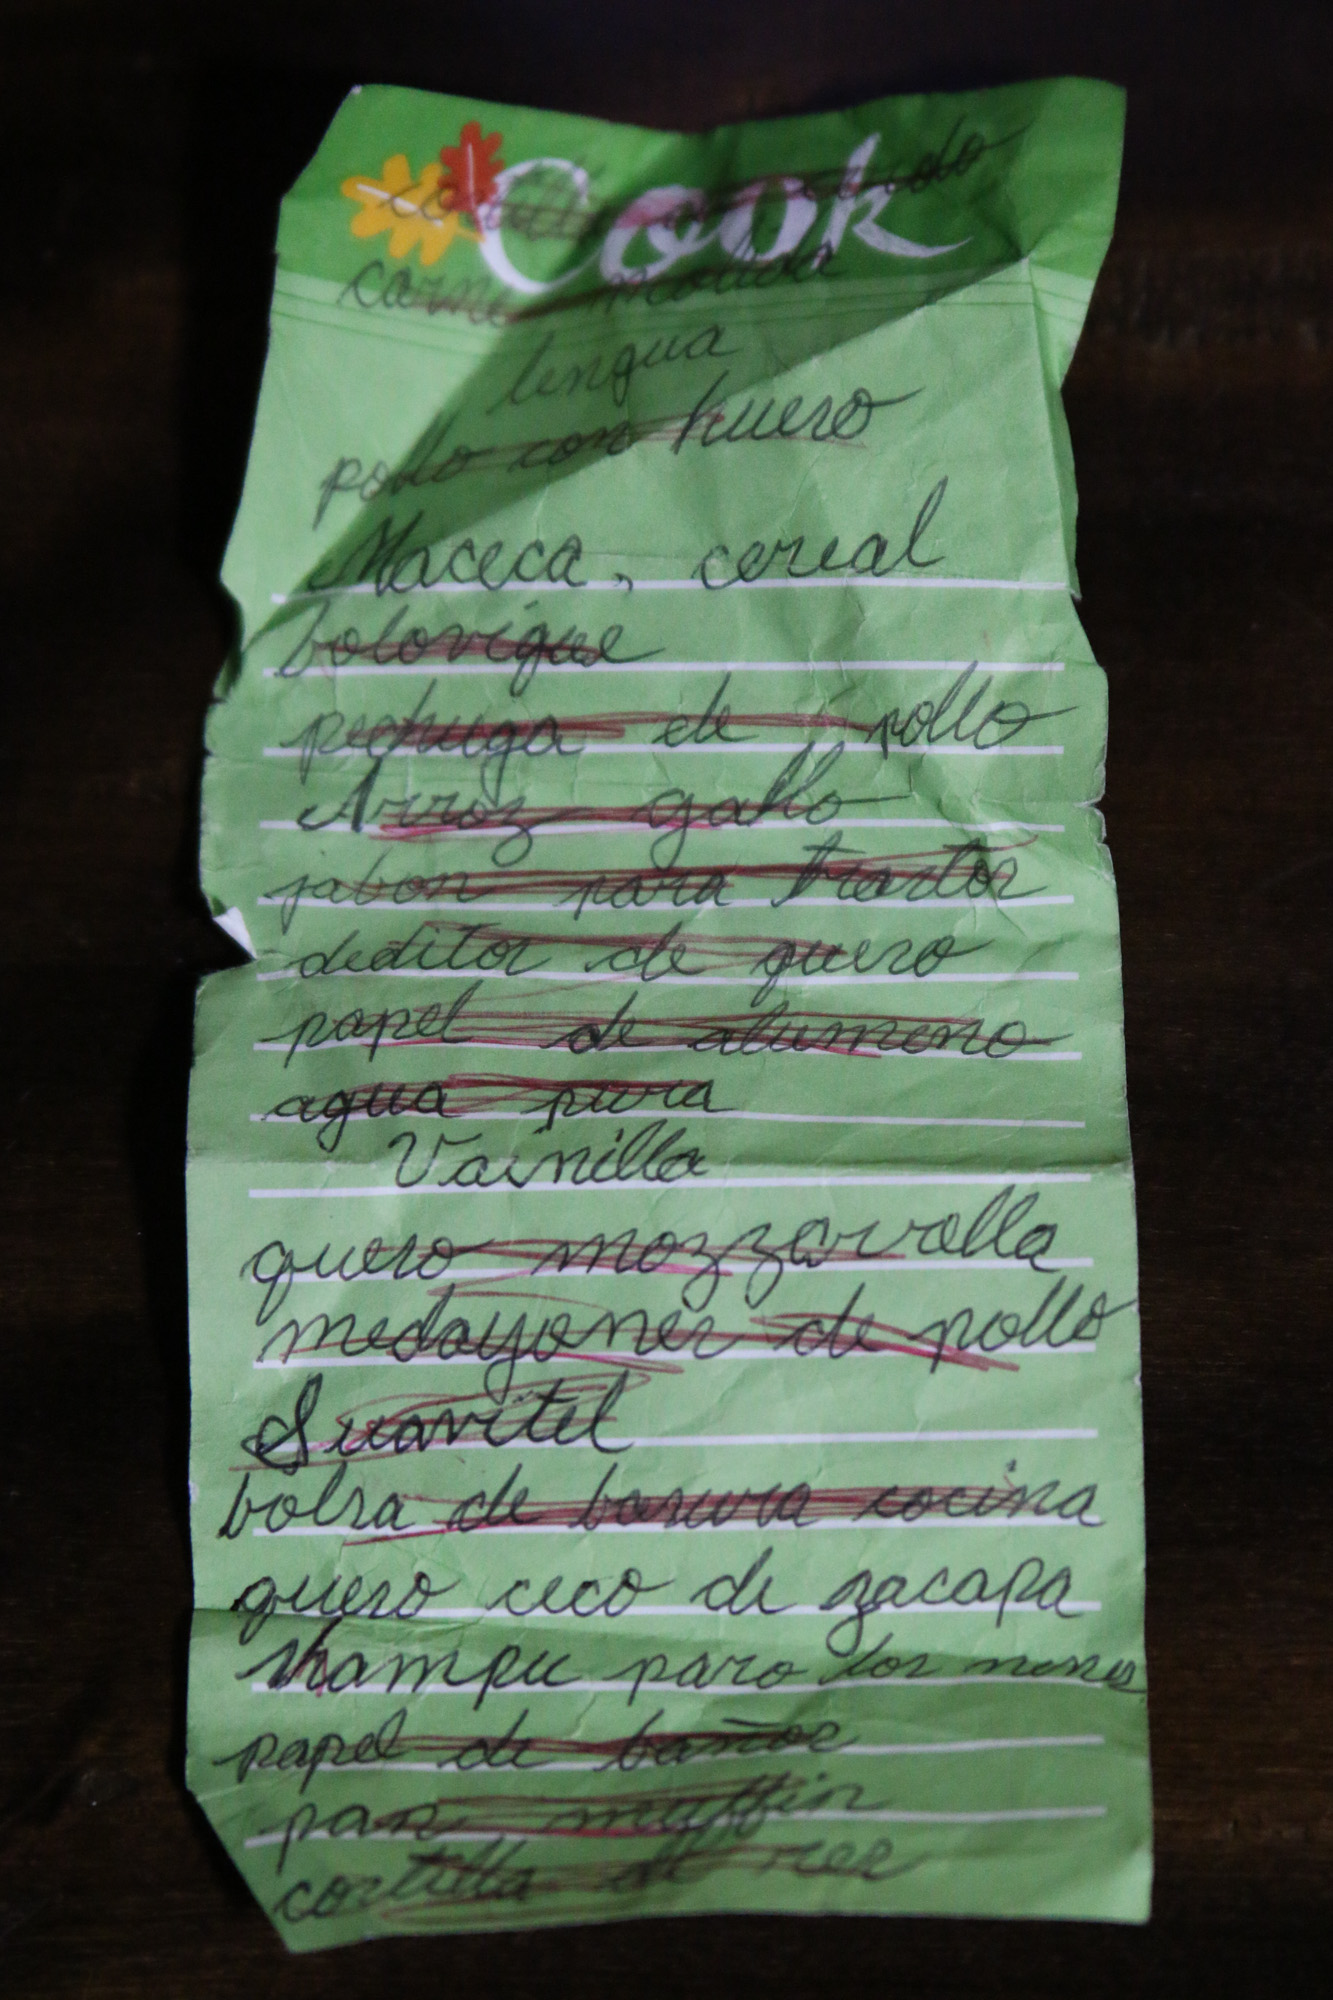 Cook
carne molida
lengua
pollo con hueso
Maceca, cereal
bolovique
pechuga de pollo
Arroz gallo
jabon para trastos
deditos de queso
papel de alumino
agua pura
Vainilla
queso mozzarrella
medayones de pollo
Suavitel
bolsa de basura cocina
queso ceco de zacapa
shampu para los nenes
papel de baños
pan muffin
costilla de res